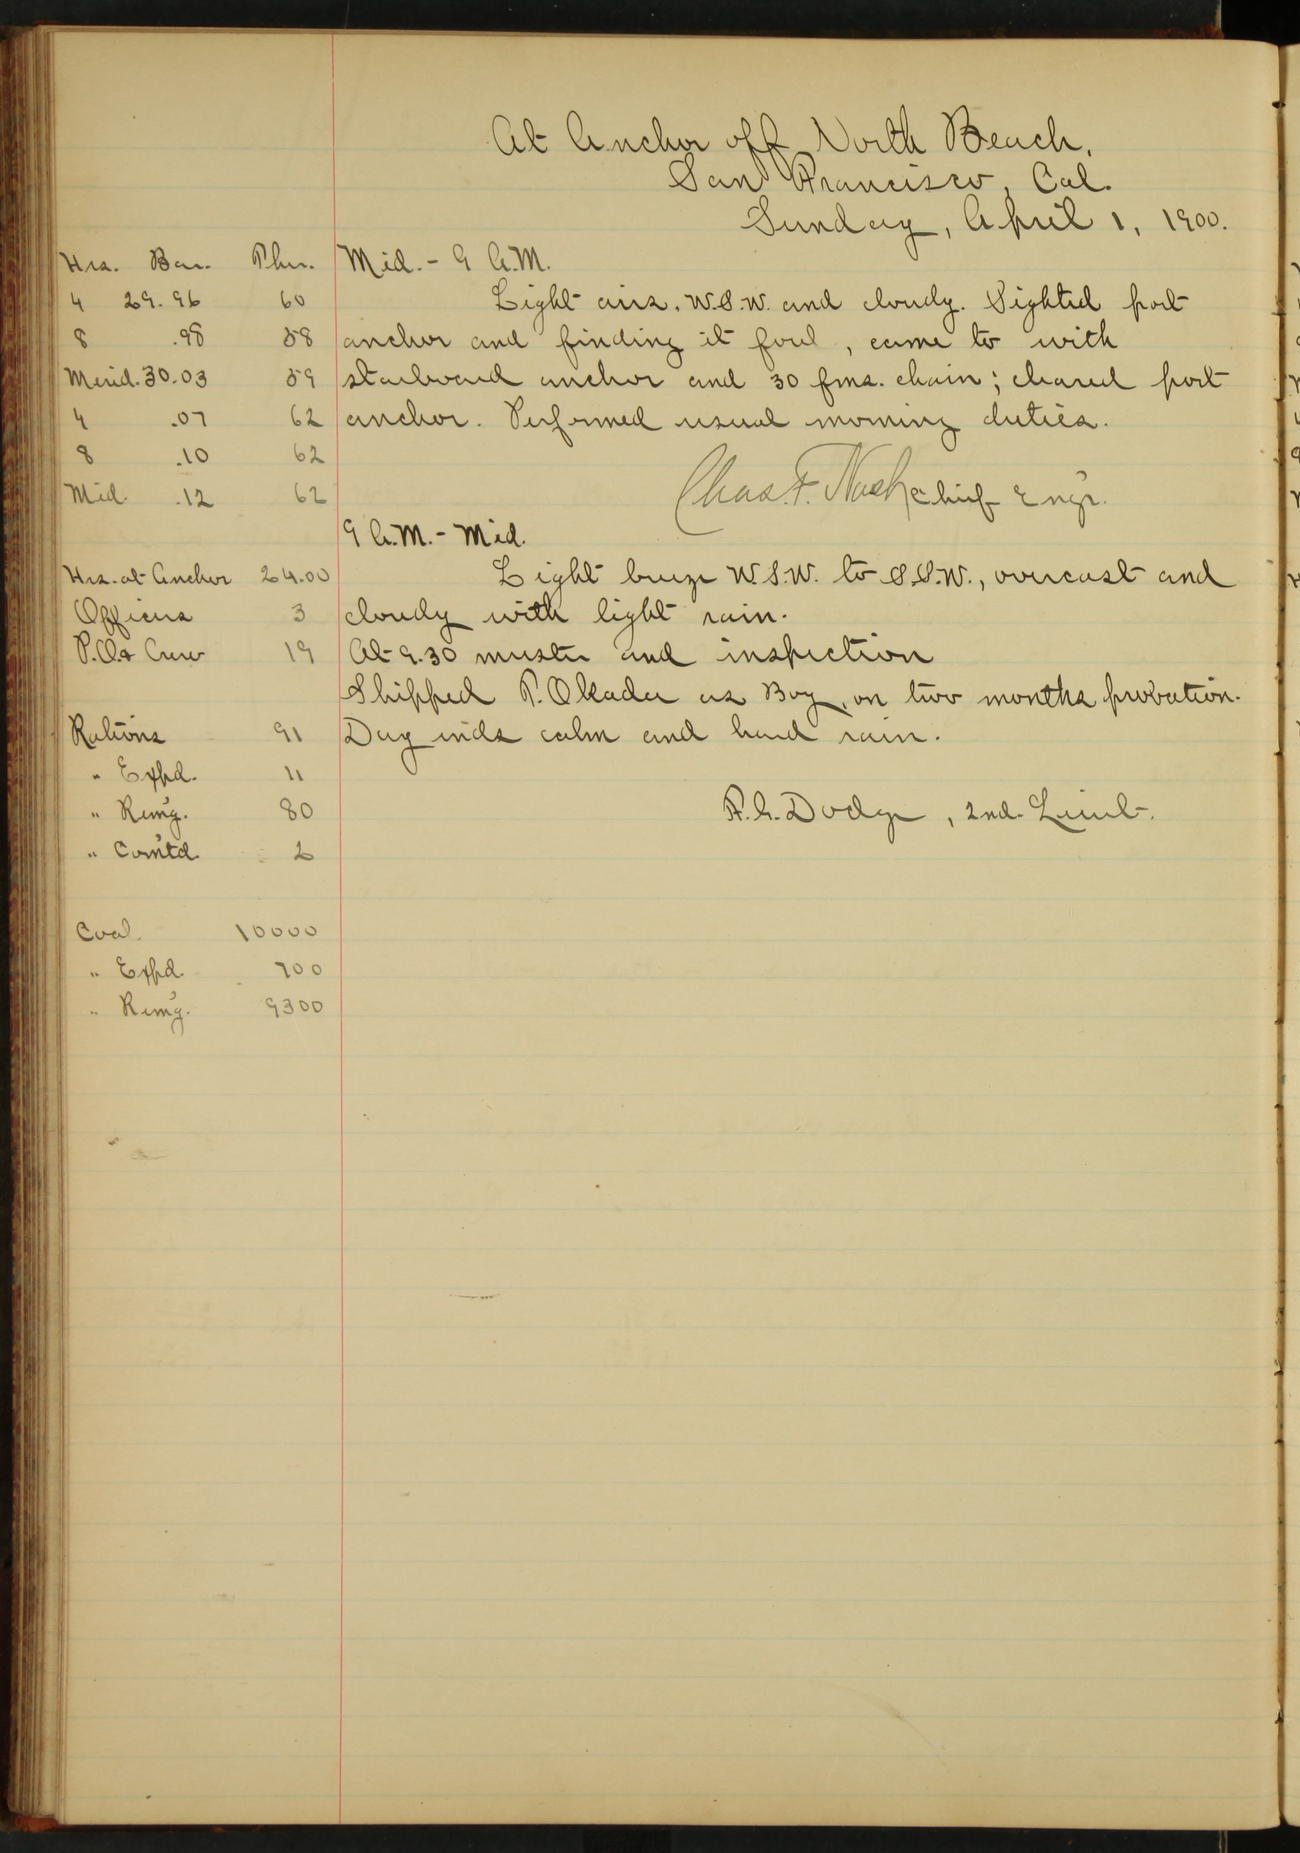 At Anchor off North Beach,
San Francisco, Cal.
Sunday, April 1, 1900.
Hrs. Bar. Ther.
4 29.96 60
8 .98 58
Merid. 30.03 59
4 .07 62
8 .10 62
Mid. .12 62
Hrs. at Anchor 24.00
Officers 3
P.O.& Crew 19
Rations 91
" Expd. 11
" Rem'g. 80
" Com'td. 2
Coal. 10000
" Expd. 700
" Rem'g. 9300
Mid. - 9 A.M.
Light airs, W.S.W. and cloudy. Sighted port
anchor and finding it foul, came to with
starboard anchor and 30 fms. chain; cleared port
anchor. Performed usual morning duties.
Chas. F. Nash Chief Engr.
9 A.M. - Mid.
Light breeze W.S.W. to S.S.W., overcast and
cloudy with light rain.
At 9.30 muster and inspection
Shipped P. Okada as Boy, on two months probation.
Day ends calm and hard rain.
F.G. Dodge, 2nd. Lieut.